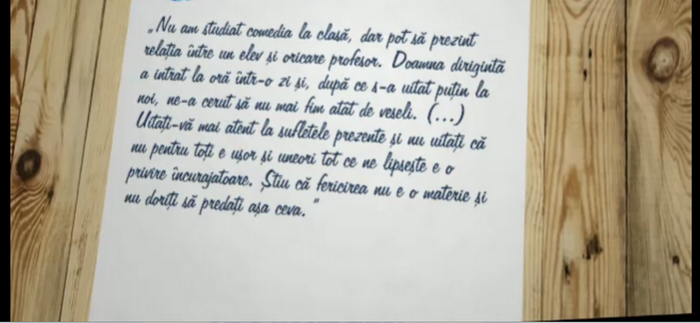 „Nu am studiat comedia la clasă, dar pot să prezint
relația între un elev și oricare profesor. Doamna dirigintă
a intrat la oră într-o zi și, după ce s-a uitat puțin la
noi, ne-a cerut să nu mai fim atât de veseli. (...)
Uitați-vă mai atent la sufletele prezente și nu uitați că
nu pentru toți e ușor și uneori tot ce ne lipsește e o
privire încurajatoare. Știu că fericirea nu e o materie și
nu doriți să predați așa ceva.”